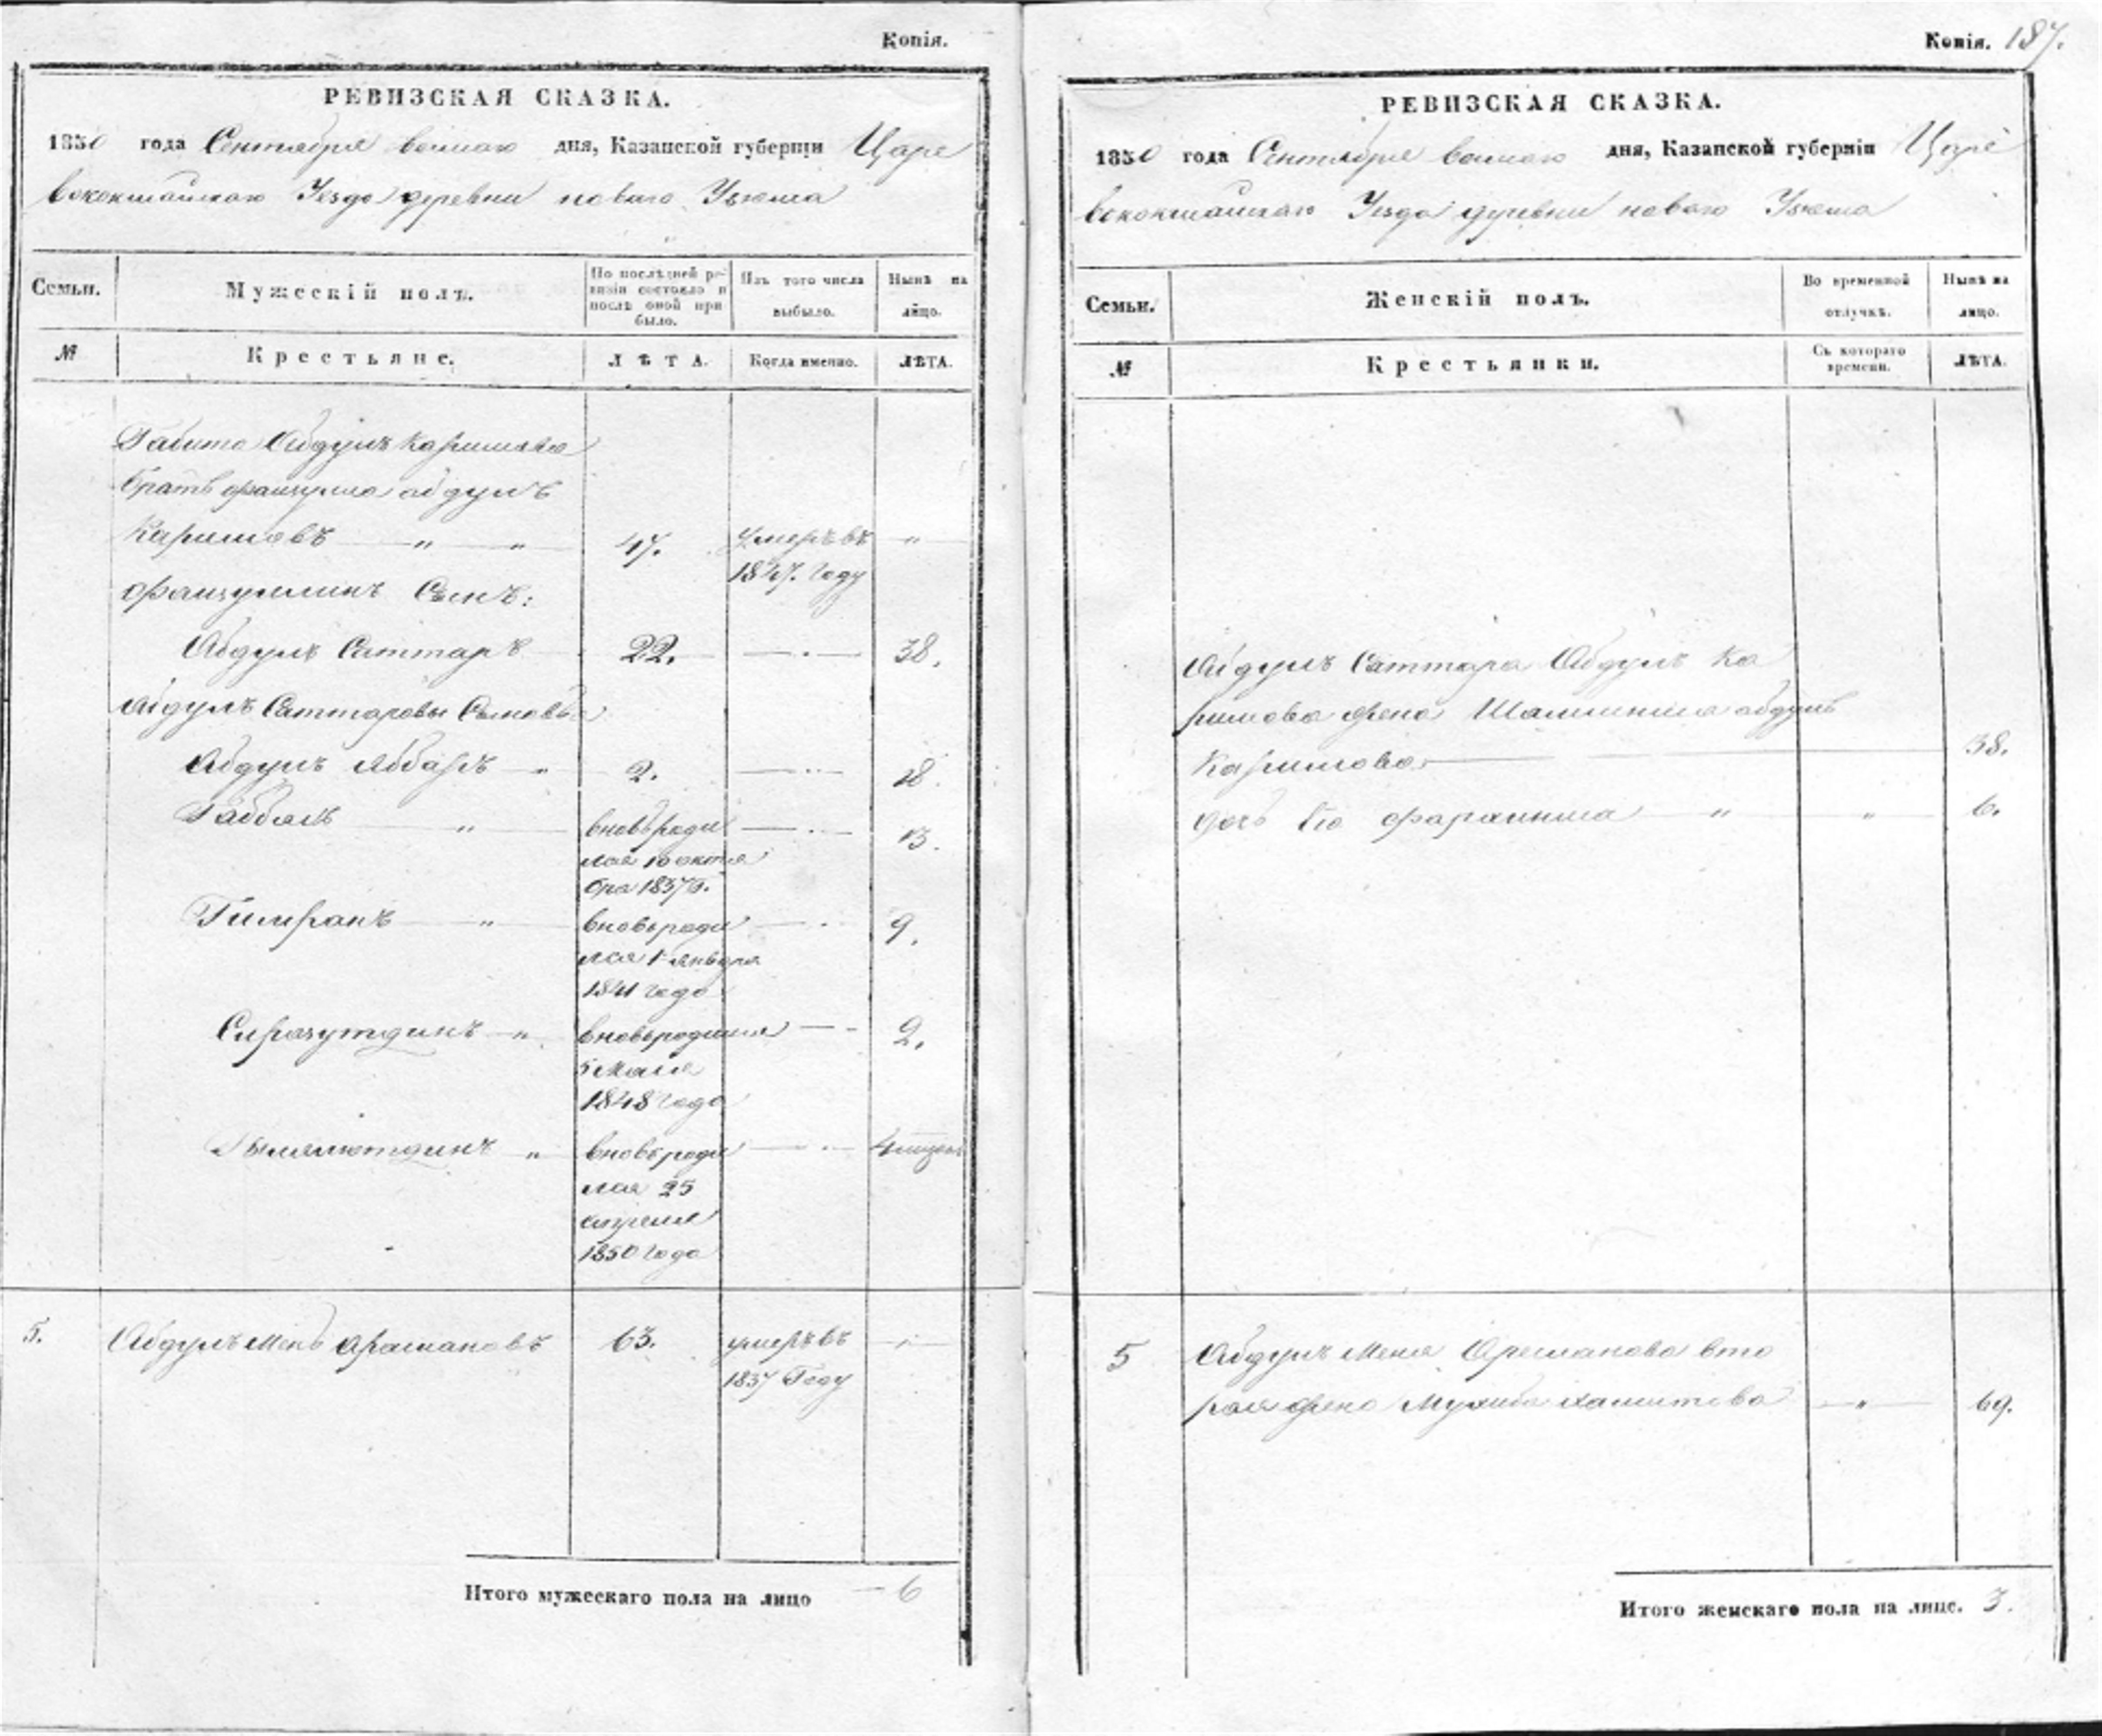 Копія.
РЕВИЗСКАЯ СКАЗКА.
1850 года Сентября дня, Казанской губерніи Царе
вококшайскаго Уезда деревни новаго Узюма
Семьи. Мужескій полъ. По послѣдней ре-
визіи состояло и
послѣ оной при
было. Изъ того числа
выбыло. Нынѣ на
лицо.
№ Крестьяне. ЛѢТА. Когда именно. ЛѢТА.
Габита Абдулъ Каримова
братъ Файзулла абдулъ
Каримовъ — „ — „ 47. умеръ въ „
1847. году
Файзуллинъ Сынъ:
Абдулъ Саттаръ 22. — 38.
Абдулъ Саттаровы Сыновья
Абдулъ Яббаръ „ 2. — 18.
„ вновь роди — 13.
лся 10 октя
бря 1837 г.
Гимранъ „ вновь роди — 9.
лся 1 января
1841 года
Сиразутдинъ „ вновьродился — 2.
5 Мая
1848 года
„ вновь роди — 4 месец
лся 25
апреля
1850 года
5. Абдулъ Менъ 63. умеръ въ
1837 Году
Итого мужескаго пола на лицо — 6
Копія. 187.
РЕВИЗСКАЯ СКАЗКА.
1850 года Сентября дня, Казанской губерніи Царе
вококшайскаго Уезда деревни новаго Узюма
Семьи. Женскій полъ. Во временной
отлучкѣ. Нынѣ на
лицо.
№ Крестьянки. Съ котораго
времени. ЛѢТА.
Абдулъ Саттара Абдулъ Ка
римова жена абдулъ
Каримова — 38.
дочь Его „ „ 6.
5 Абдулъ Меня вто
рая жена — „ — 69.
Итого женскаго пола на лице. 3.